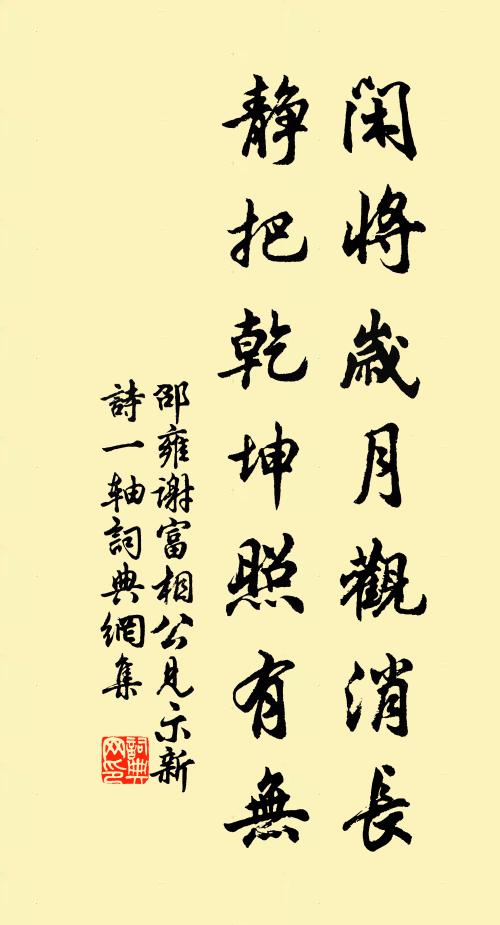 閑將歲月觀消長
靜把乾坤照有無
邵雍謝富相公見示新
詩一轴詞典網集
詞典
网印